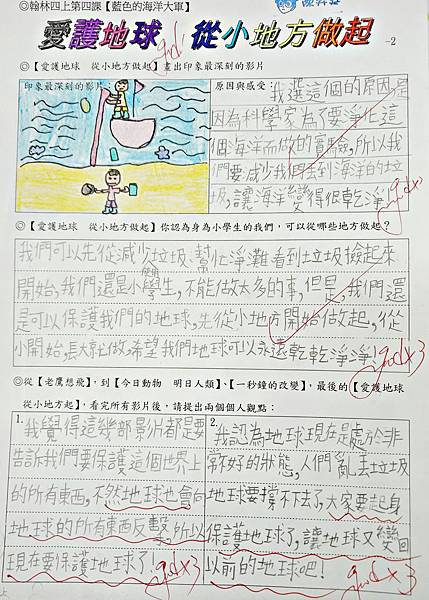 ◎翰林四上第四課【藍色的海洋大軍】
愛護地球 從小地方做起 -2
good
◎【愛護地球 從小地方做起】畫出印象最深刻的影片
印象最深刻的影片:
原因與感受:
我選這個的原因,是
因為科學家為了要淨化這
個海洋而做的實驗,所以我
們要減少我們丟到海洋的垃
圾,讓海洋變得很乾淨。
good
◎【愛護地球 從小地方做起】你認為身為小學生的我們,可以從哪些地方做起?
我們可以先從減少垃圾、幫忙淨灘、看到垃圾撿起來
開始,我們還是小學生,不能做太多的事,但是,我們還
是可以保護我們的地球,先從小地方開始做起,從
小開始,長大就做,希望我們地球可以永遠乾乾淨淨!
good×3
◎從【老鷹想飛】,到【今日動物 明日人類】、【一秒鐘的改變】,最後的【愛護地球
從小地方做起】,看完所有影片後,請提出兩個個人觀點:
1.
我覺得這幾部影片都是要
告訴我們要保護這個世界上
的所有東西,不然地球也會向
地球的所有東西反擊,所以
現在要保護地球了!
good×3
2.
我認為地球現在是處於非
常不好的狀態,人們亂丟垃圾
地球要撐不下去了,大家要起身
保護地球了,讓地球又變回
以前的地球吧!
good×3